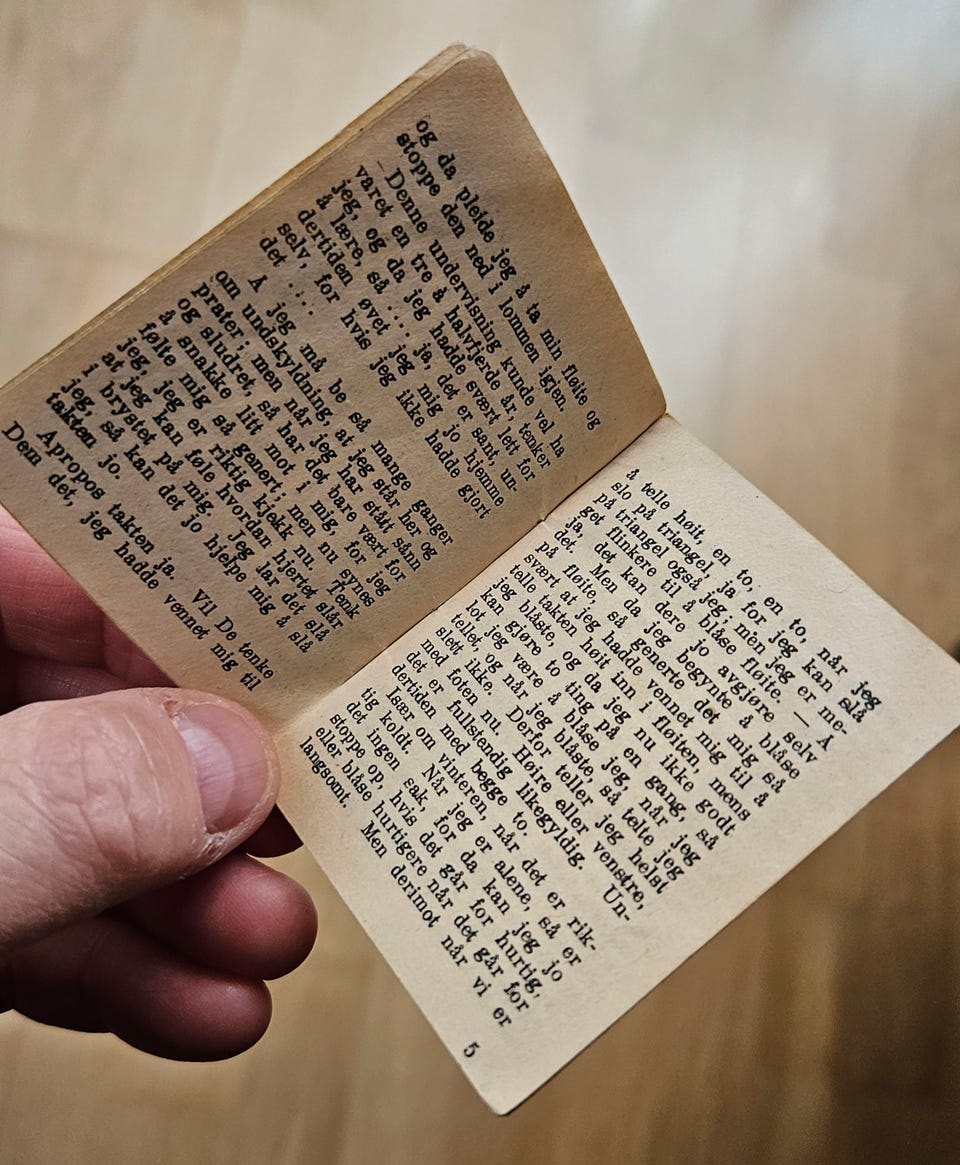 og da pleide jeg å ta min fløite og
stoppe den ned i lommen igjen.
– Denne undervisning kunde vel ha
varet en tre å halvfjerde år, tenker
jeg, og da jeg hadde svært lett for
å lære, så .... ja, det er sant, un-
dertiden øvet jeg mig jo hjemme
selv, for hvis jeg ikke hadde gjort
det ....
Å jeg må be så mange ganger
om undskyldning, at jeg står her og
prater; men når jeg har stått sånn
og sludret, så har det bare vært for
å snakke litt mot i mig, for jeg
følte mig så genert; men nu synes
jeg, jeg er riktig kjekk nu. Tenk
at jeg kan føle hvordan hjertet slår
i brystet på mig. Jeg lar det slå
jeg, så kan det jo hjelpe mig å slå
takten jo.
Apropos takten ja. Vil De tenke
Dem det, jeg hadde vennet mig til
å telle høit, en to, en to, når jeg
slo på triangel, ja for jeg kan slå
på triangel også jeg; men jeg er me-
get flinkere til å blåse fløite. — Å
ja, det kan dere jo avgjøre selv
det. Men da jeg begynte å blåse
på fløite, så generte det mig så
svært at jeg hadde vennet mig til å
telle takten høit inn i fløiten, mens
jeg blåste, og da jeg nu ikke godt
kan gjøre to ting på en gang, så
lot jeg være å blåse jeg, når jeg
tellet, og når jeg blåste, så telte jeg
slett ikke. Derfor teller jeg helst
med foten nu. Høire eller venstre,
det er fullstendig likegyldig. Un-
dertiden med begge to.
Især om vinteren, når det er rik-
tig koldt. Når jeg er alene, så er
det ingen sak, for da kan jeg jo
stoppe op, hvis det går for hurtig,
eller blåse hurtigere når det går for
langsomt. Men derimot når vi er
5